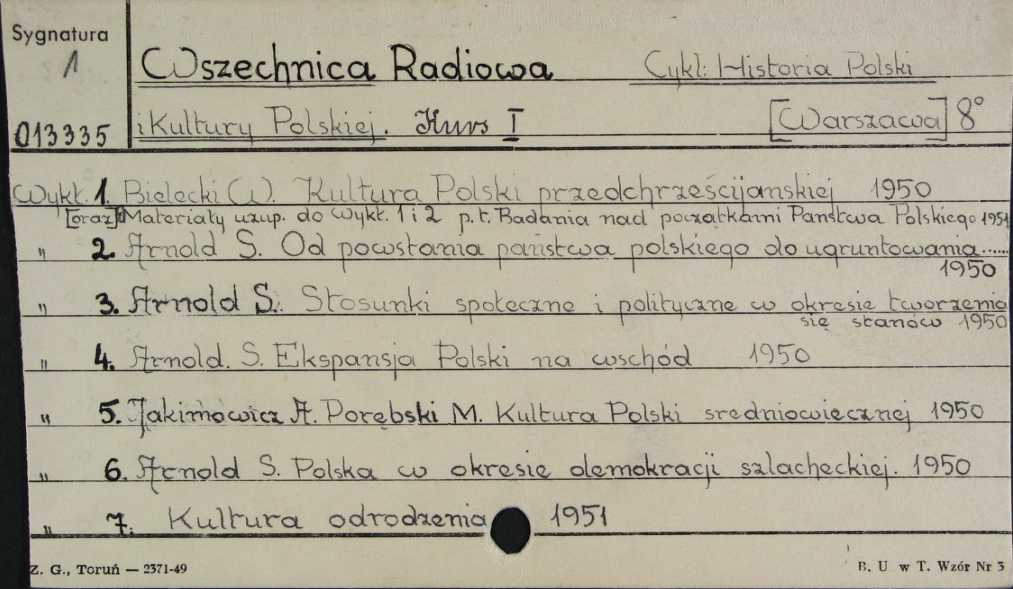 Sygnatura
1
013335
Wszechnica Radiowa Cykl: Historia Polski
i Kultury Polskiej. Kurs I [Warszawa] 8°
Wykł. 1. Bielecki W. Kultura Polski przedchrześcijańskiej 1950
[oraz] Materiały uzup. do wykł. 1 i 2 p.t. Badania nad początkami Państwa Polskiego 1951
" 2. Arnold S. Od powstania państwa polskiego do ugruntowania......
1950
" 3. Arnold S. Stosunki społeczne i polityczne w okresie tworzenia
się stanów 1950
" 4. Arnold. S. Ekspansja Polski na wschód 1950
" 5. Jakimowicz A. Porębski M. Kultura Polski sredniowiecznej 1950
" 6. Arnold S. Polska w okresie demokracji szlacheckiej. 1950
" 7. Kultura odrodzenia 1951
Z. G., Toruń — 2371-49 B. U w T. Wzór Nr 3